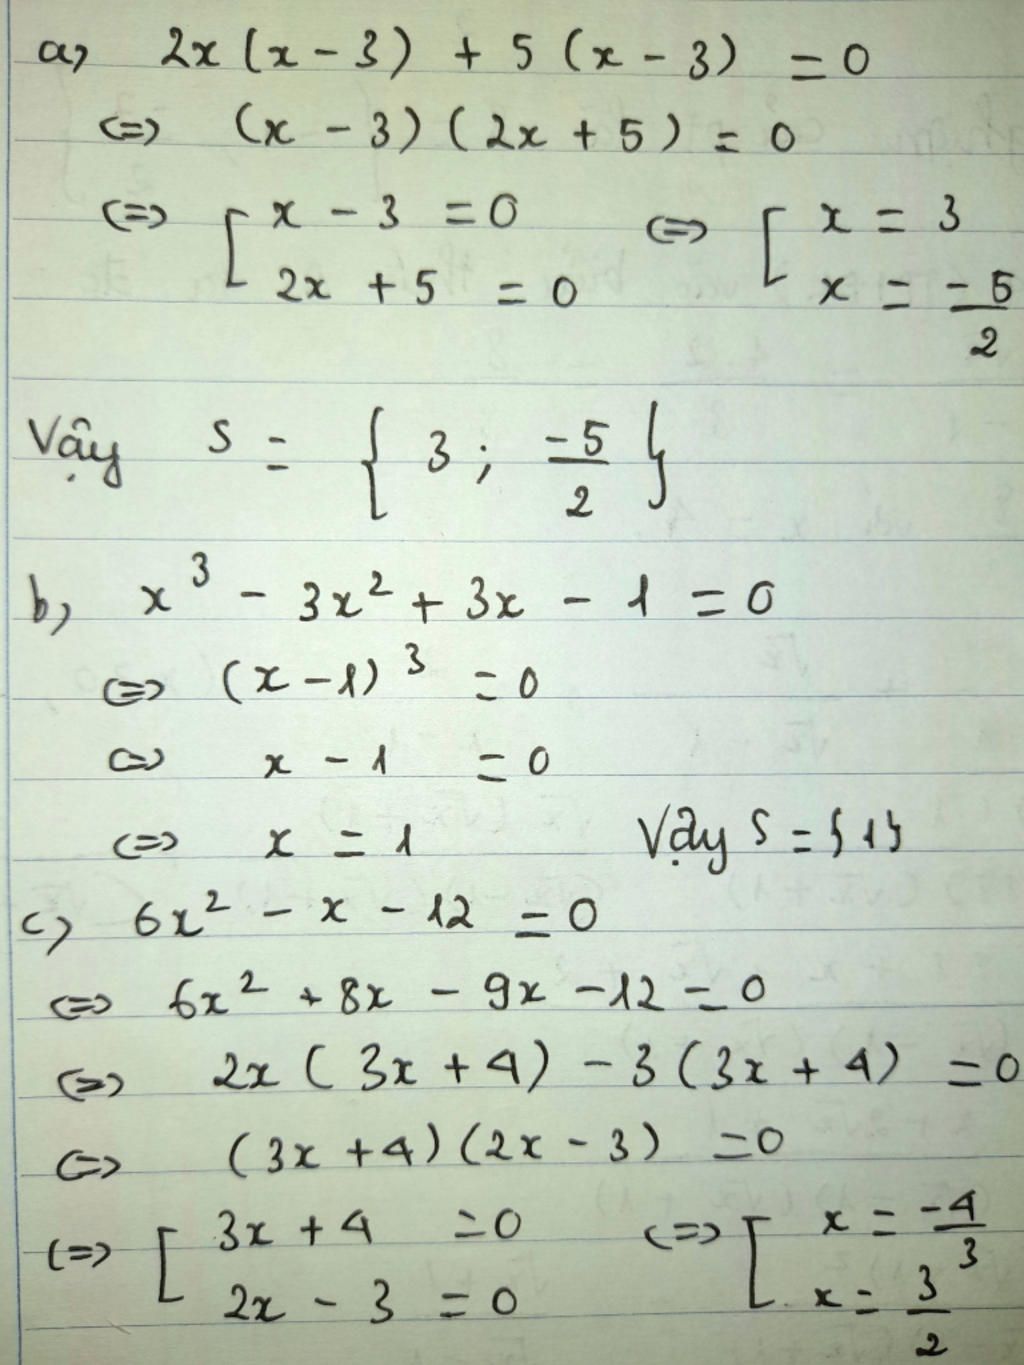 a) 2x(x - 3) + 5(x - 3) = 0
<=> (x - 3)(2x + 5) = 0
<=> [ x - 3 = 0 <=> [ x = 3
2x + 5 = 0 x = -5/2
Vậy S = { 3 ; -5/2 }
b) x³ - 3x² + 3x - 1 = 0
<=> (x - 1)³ = 0
<=> x - 1 = 0
<=> x = 1 Vậy S = {1}
c) 6x² - x - 12 = 0
<=> 6x² + 8x - 9x - 12 = 0
<=> 2x(3x + 4) - 3(3x + 4) = 0
<=> (3x + 4)(2x - 3) = 0
<=> [ 3x + 4 = 0 <=> [ x = -4/3
2x - 3 = 0 x = 3/2